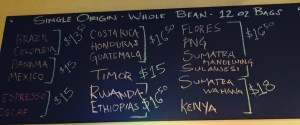 SINGLE ORIGIN - WHOLE BEAN - 12 OZ BAGS
BRAZIL
COLOMBIA
$13.50
PANAMA
MEXICO
$15
ESPRESSO
DECAF
$15
COSTA RICA
HONDURAS
GUATEMALA
$16.50
TIMOR $15
RWANDA
ETHIOPIAS
$16.50
FLORES
PNG
SUMATRA
MANDHELING
SULAWESI
$16.50
SUMATRA
WAHANA
$18
KENYA